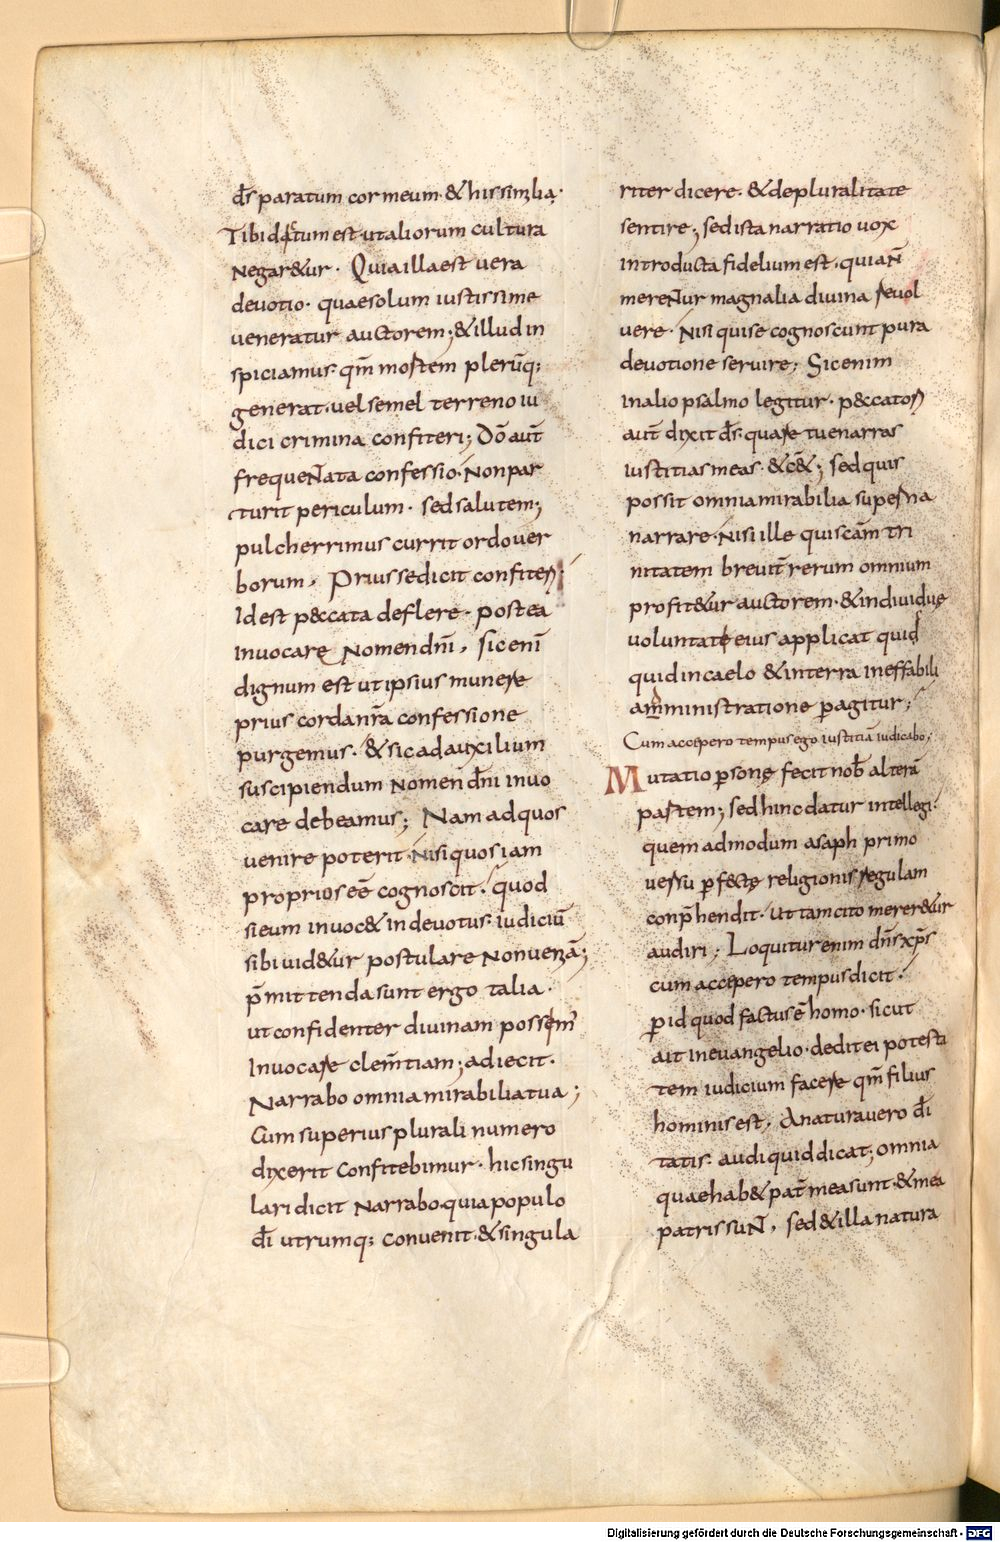 dr̄s paratum cor meum· & his similia·
Tibi dictum est· ut aliorum cultura
Negar&ur· Quia illa est vera
devotio· quae solum iustissime
veneratur auctorem; & illud in
spiciamus· qm̄ mortem plerūq;
generat· vel semel terreno iu
dici crimina confiteri; Dō aūt
frequentata confessio· Non par
turit periculum· sed salutem;
pulcherrimus currit ordo ver
borum, Prius se dicit confiteri·
Id est p&ccata deflere· postea
Invocare Nomen dn̄i, sic enī
dignum est ut ipsius munere
prius corda nr̄a confessione
purgemus· & sic ad auxilium
suscipiendum Nomen dn̄i invo
care debeamus; Nam ad quos
venire poterit· Nisi quos iam
proprios eē cognoscit· quod
si eum invoc& indevotus· iudiciū
sibi vid&ur postulare Non veniā;
p̄mittenda sunt ergo talia·
ut confidenter divinam possem̄
Invocare clem̄tiam; adiecit·
Narrabo omnia mirabilia tua;
Cum superius plurali numero
dixerit Confitebimur· hic singu
lari dicit Narrabo· quia populo
dī utrumq; convenit· & singula
riter dicere· & de pluralitate
sentire; sed ista narratio vox
introducta fidelium est· quia N̄
merentur magnalia divina revol
vere· Nisi qui se cognoscunt pura
devotione servire; Sic enim
in alio psalmo legitur· p&ccatori
aūt dixit dr̄s· quare tu enarras
iustitias meas· &c&; sed quis
possit omnia mirabilia superna
narrare· Nisi ille qui scām tri
nitatem brevit̄ rerum omnium
profit&ur auctorem· & individuę
voluntate eius applicat quid
quid in caelo & in terra ineffabili
amministratione pagitur;
Cum accepero tempus ego iustitiā iudicabo;
Mutatio psonę fecit nob̄ alterā
partem; sed hinc datur intellegi·
quem admodum asaph primo
versu pf&ctę religionis regulam
conp̄hendit· Ut tam cito merer&ur
audiri; Loquitur enim dn̄s xp̄s
cum accepero tempus dicit·
p id quod factus ē homo· sicut
ait in evangelio· dedit ei potesta
tem iudicium facere qm̄ filius
hominis est, A natura vero dī
tatis· audi quid dicat; omnia
quae hab& pat̄ mea sunt· & mea
patris sunt, sed & illa natura
Digitalisierung gefördert durch die Deutsche Forschungsgemeinschaft - DFG